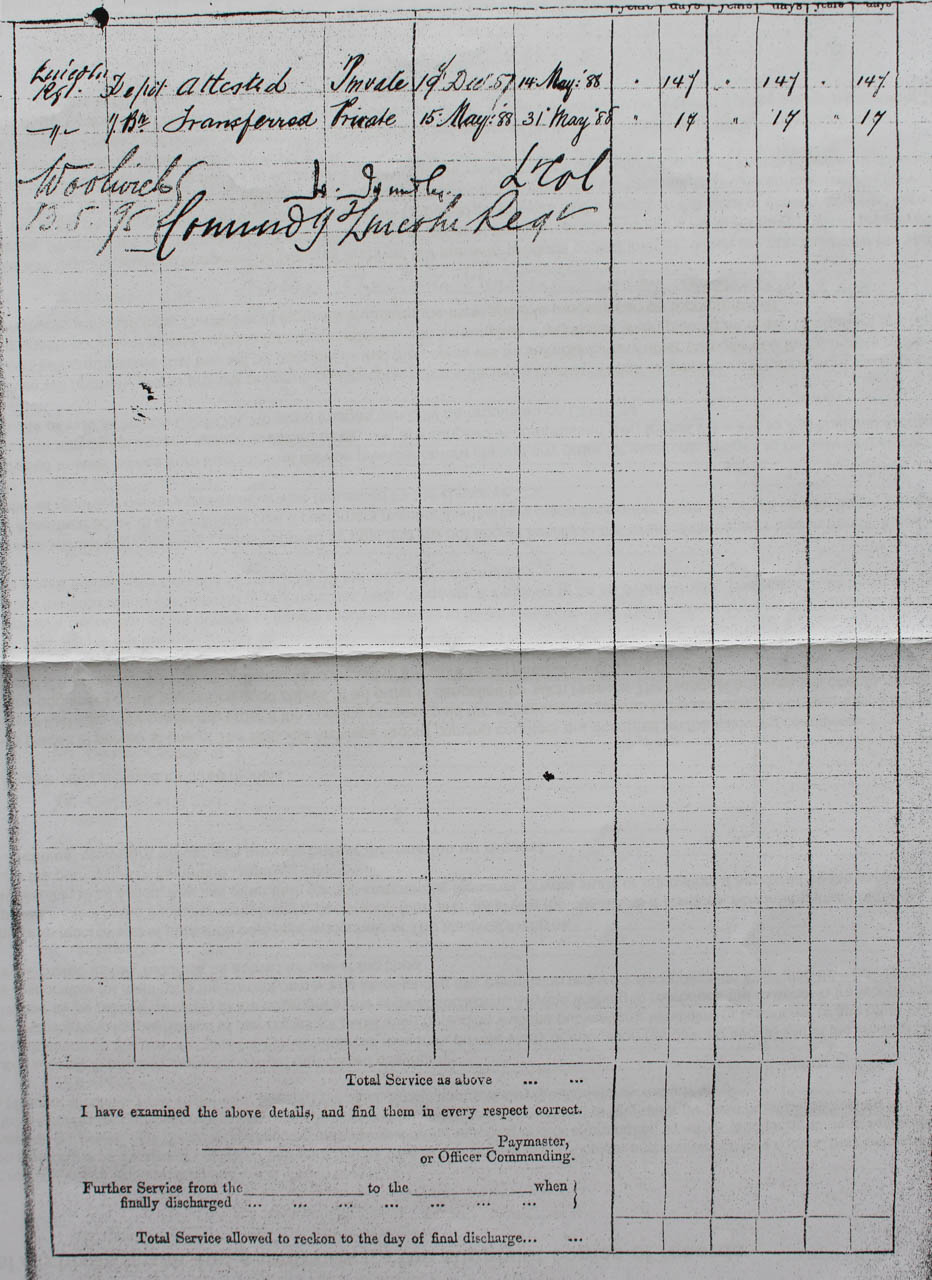 years days years days years days
Lincoln
Rgt. Depôt Attested Private 19 Dec 87 14 May '88 " 147 " 147 " 147
-"- 1 Bn Transferred Private 15 May '88 31 May '88 " 17 " 17 " 17
Woolwich Lt Col
13.5.95 Lincoln Regt
Total Service as above ... ...
I have examined the above details, and find them in every respect correct.
Paymaster,
or Officer Commanding.
Further Service from the to the when }
finally discharged ... ... ... ... ... ... ...
Total Service allowed to reckon to the day of final discharge... ...